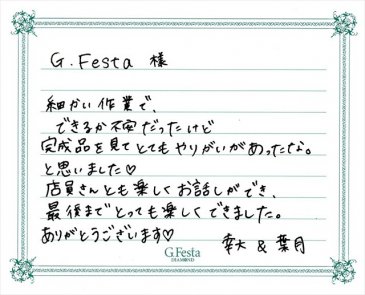 G.Festa 様
細かい作業で、
できるか不安だったけど
完成品を見てとてもやりがいがあったな。
と思いました♡
店員さんとも楽しくお話しができ、
最後までとっても楽しくできました。
ありがとうございます♡
G.Festa
DIAMOND
幸大 & 葉月